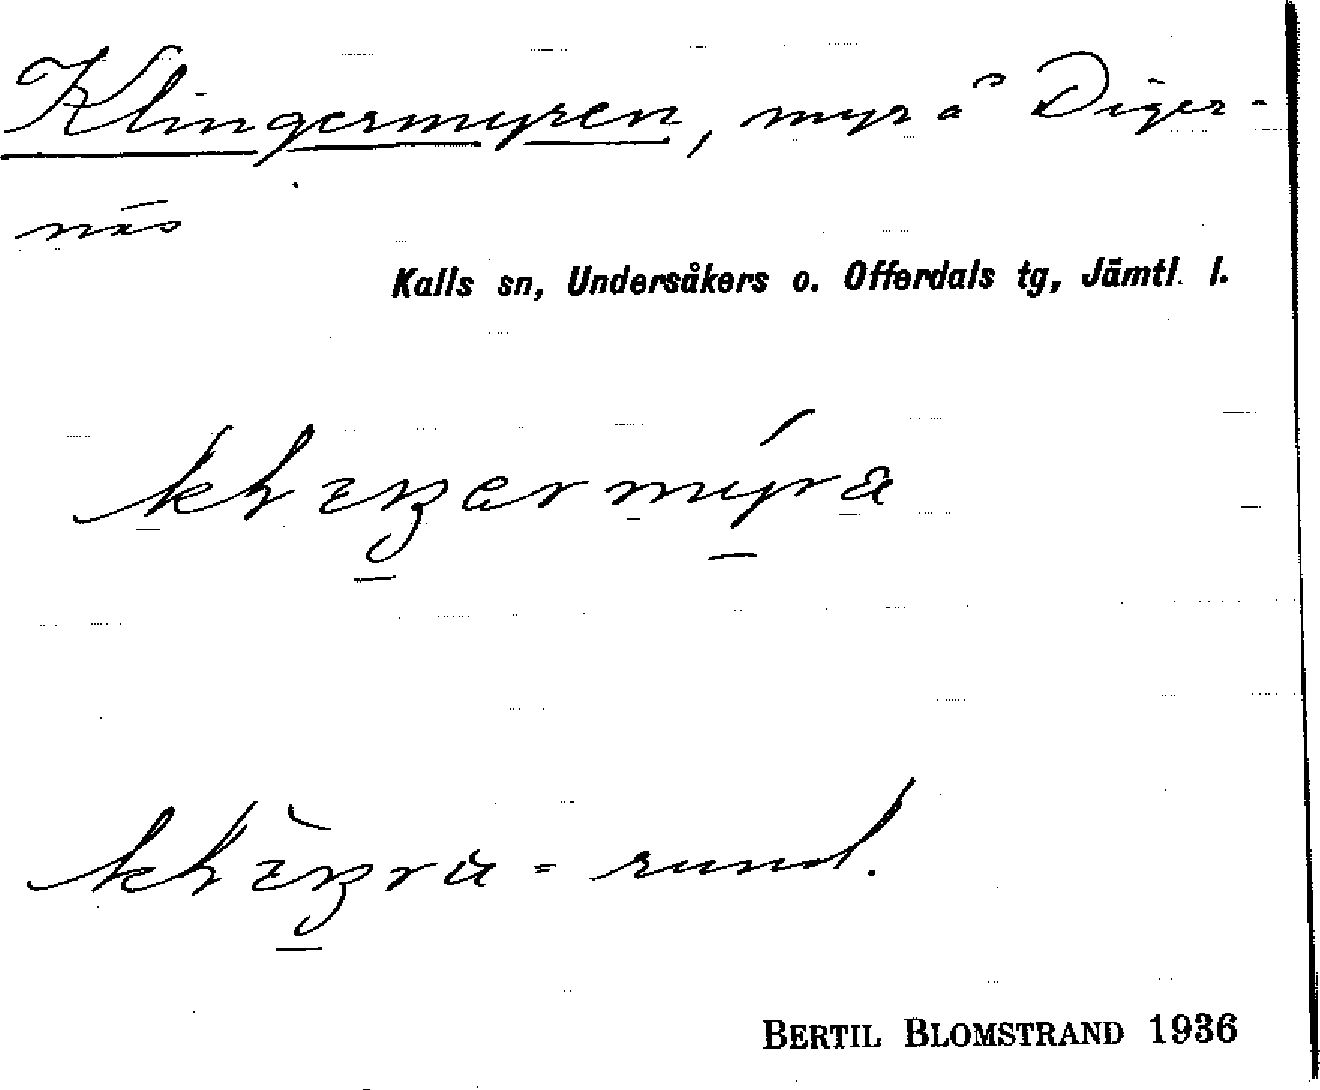 Klingermyren, myr å Diger-
näs
Kalls sn, Undersåkers o. Offerdals tg, Jämtl. l.
= rund.
BERTIL BLOMSTRAND 1936